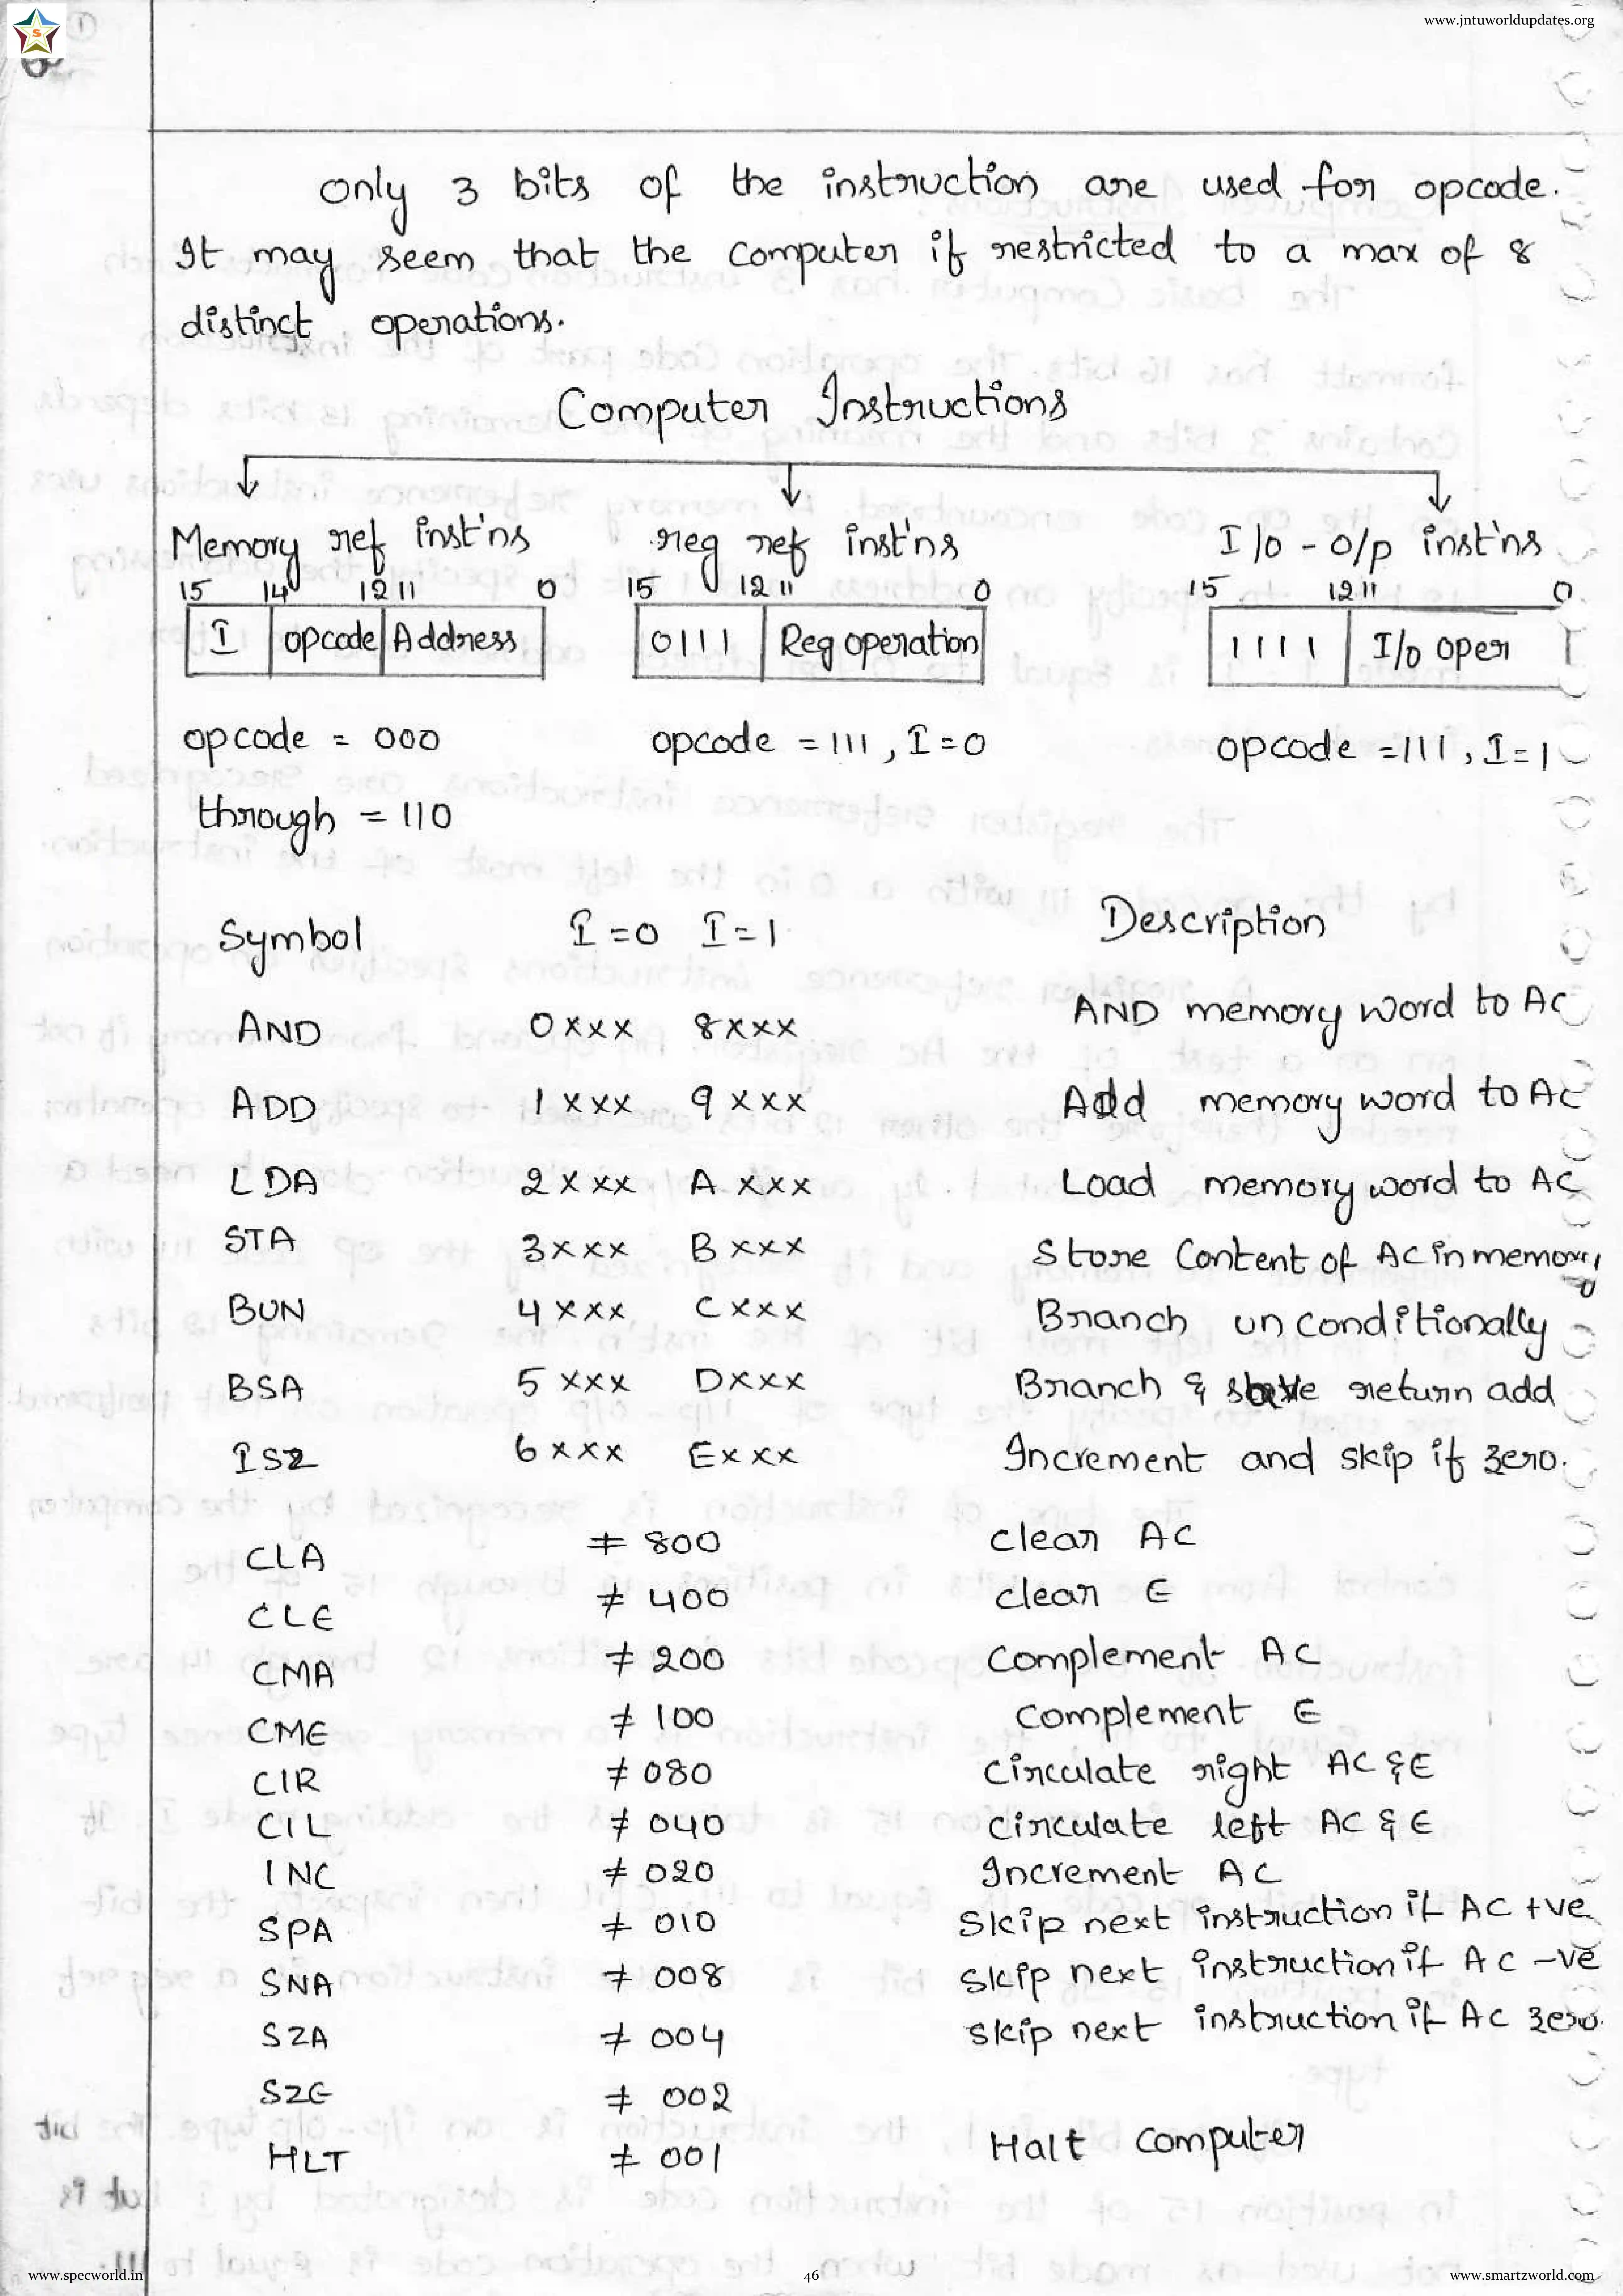 www.jntuworldupdates.org
S
1
only 3 bits of the instruction are used for opcode.
It may seem that the computer if restricted to a max of 8
distinct operations.
Computer Instructions
Memory ref inst'ns reg ref inst'ns I/o - o/p inst'ns
15 14 12 11 0 15 12 11 0 15 12 11 0
I opcode Address 0111 Reg operation 1111 I/o oper
opcode = 000 opcode = 111, I=0 opcode = 111, I=1
through = 110
Symbol I=0 I=1 Description
AND 0xxx 8xxx AND memory word to AC
ADD 1xxx 9xxx Add memory word to AC
LDA 2xxx Axxx Load memory word to AC
STA 3xxx Bxxx Store Content of AC in memory
BUN 4xxx Cxxx Branch unconditionally
BSA 5xxx Dxxx Branch & save return add
ISZ 6xxx Exxx Increment and skip if zero.
CLA ≠ 800 clear AC
CLE ≠ 400 clear E
CMA ≠ 200 complement AC
CME ≠ 100 complement E
CIR ≠ 080 circulate right AC & E
CIL ≠ 040 circulate left AC & E
INC ≠ 020 Increment AC
SPA ≠ 010 skip next instruction if AC +ve
SNA ≠ 008 skip next instruction if AC -ve
SZA ≠ 004 skip next instruction if AC zero.
SZE ≠ 002
HLT ≠ 001 Halt computer
www.specworld.in 46 www.smartzworld.com